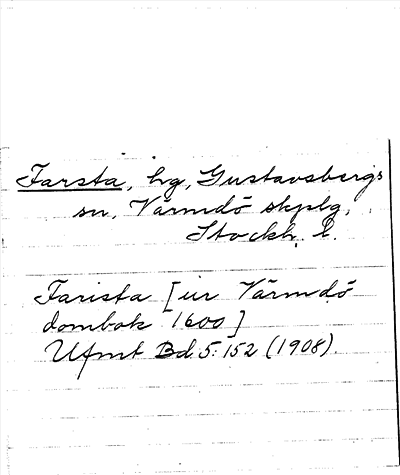 Farsta, hg, Gustavsbergs
sn, Värmdö skplg,
Stockh. l.
Farista [ur Värmdö
dombok 1600]
Ufmt Bd 5:152 (1908).